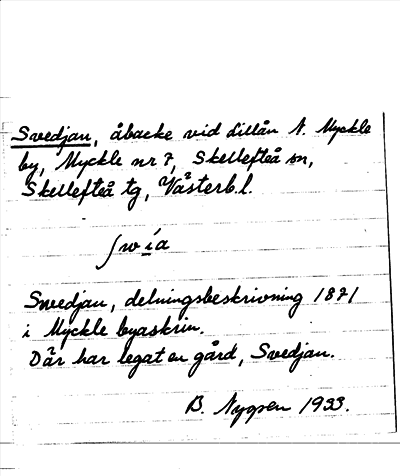 Svedjan, åbacke vid Lillån N. Myckle
by, Myckle nr 7, Skellefteå sn,
Skellefteå tg, Västerb.l.
ʃwía
Swedjan, delningsbeskrivning 1871
i Myckle byaskrin.
Där har legat en gård, Svedjan.
B. Nygren 1933.